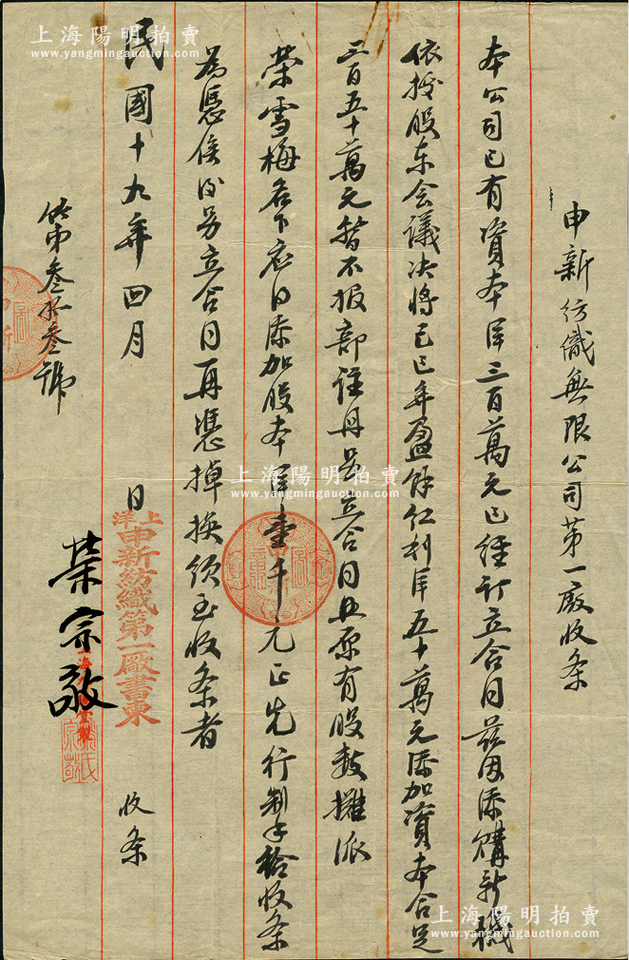 申新紡織無限公司第一廠收条
本公司已有資本洋三百萬元已經訂立合同茲因添購新機
依據股东会議决將己巳年盈餘红利洋五十萬元添加資本合足
三百五十萬元暫不报部註册另立合同且原有股数攤派
荣雪梅名下应日添加股本洋壹千元正先行制手給收条
為憑俟後另立合同再憑掉换须至收条者
民國十九年四月 日
收条
上洋申新紡織第一廠書柬
荣宗敬
第叁拾叁號
上海陽明拍賣
www.yangmingauction.com
上海陽明拍賣
www.yangmingauction.com
上海陽明拍賣
www.yangmingauction.com
上海陽明拍賣
www.yangmingauction.com